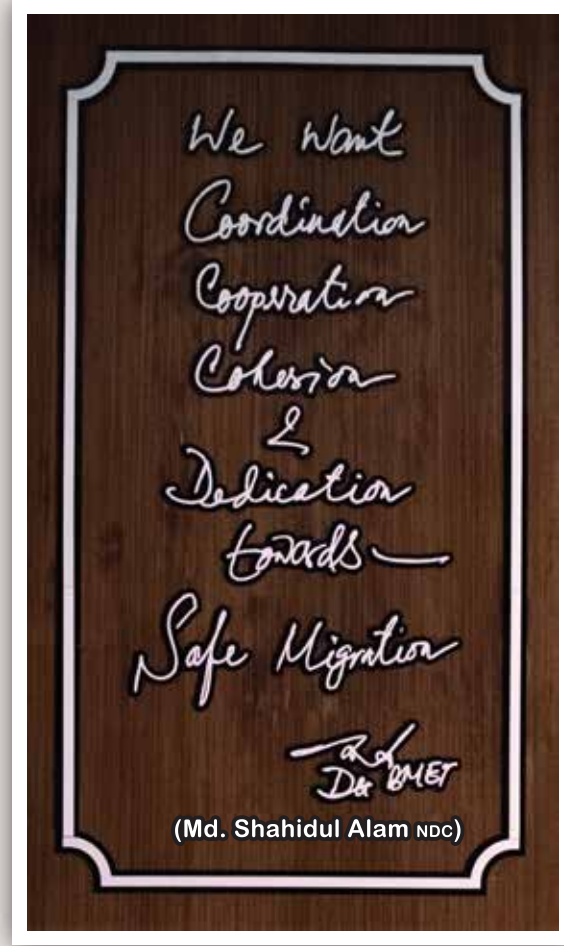 We Want
Coordination
Cooperation
Cohesion
&
Dedication
towards —
Safe Migration
DG BMET
(Md. Shahidul Alam NDC)